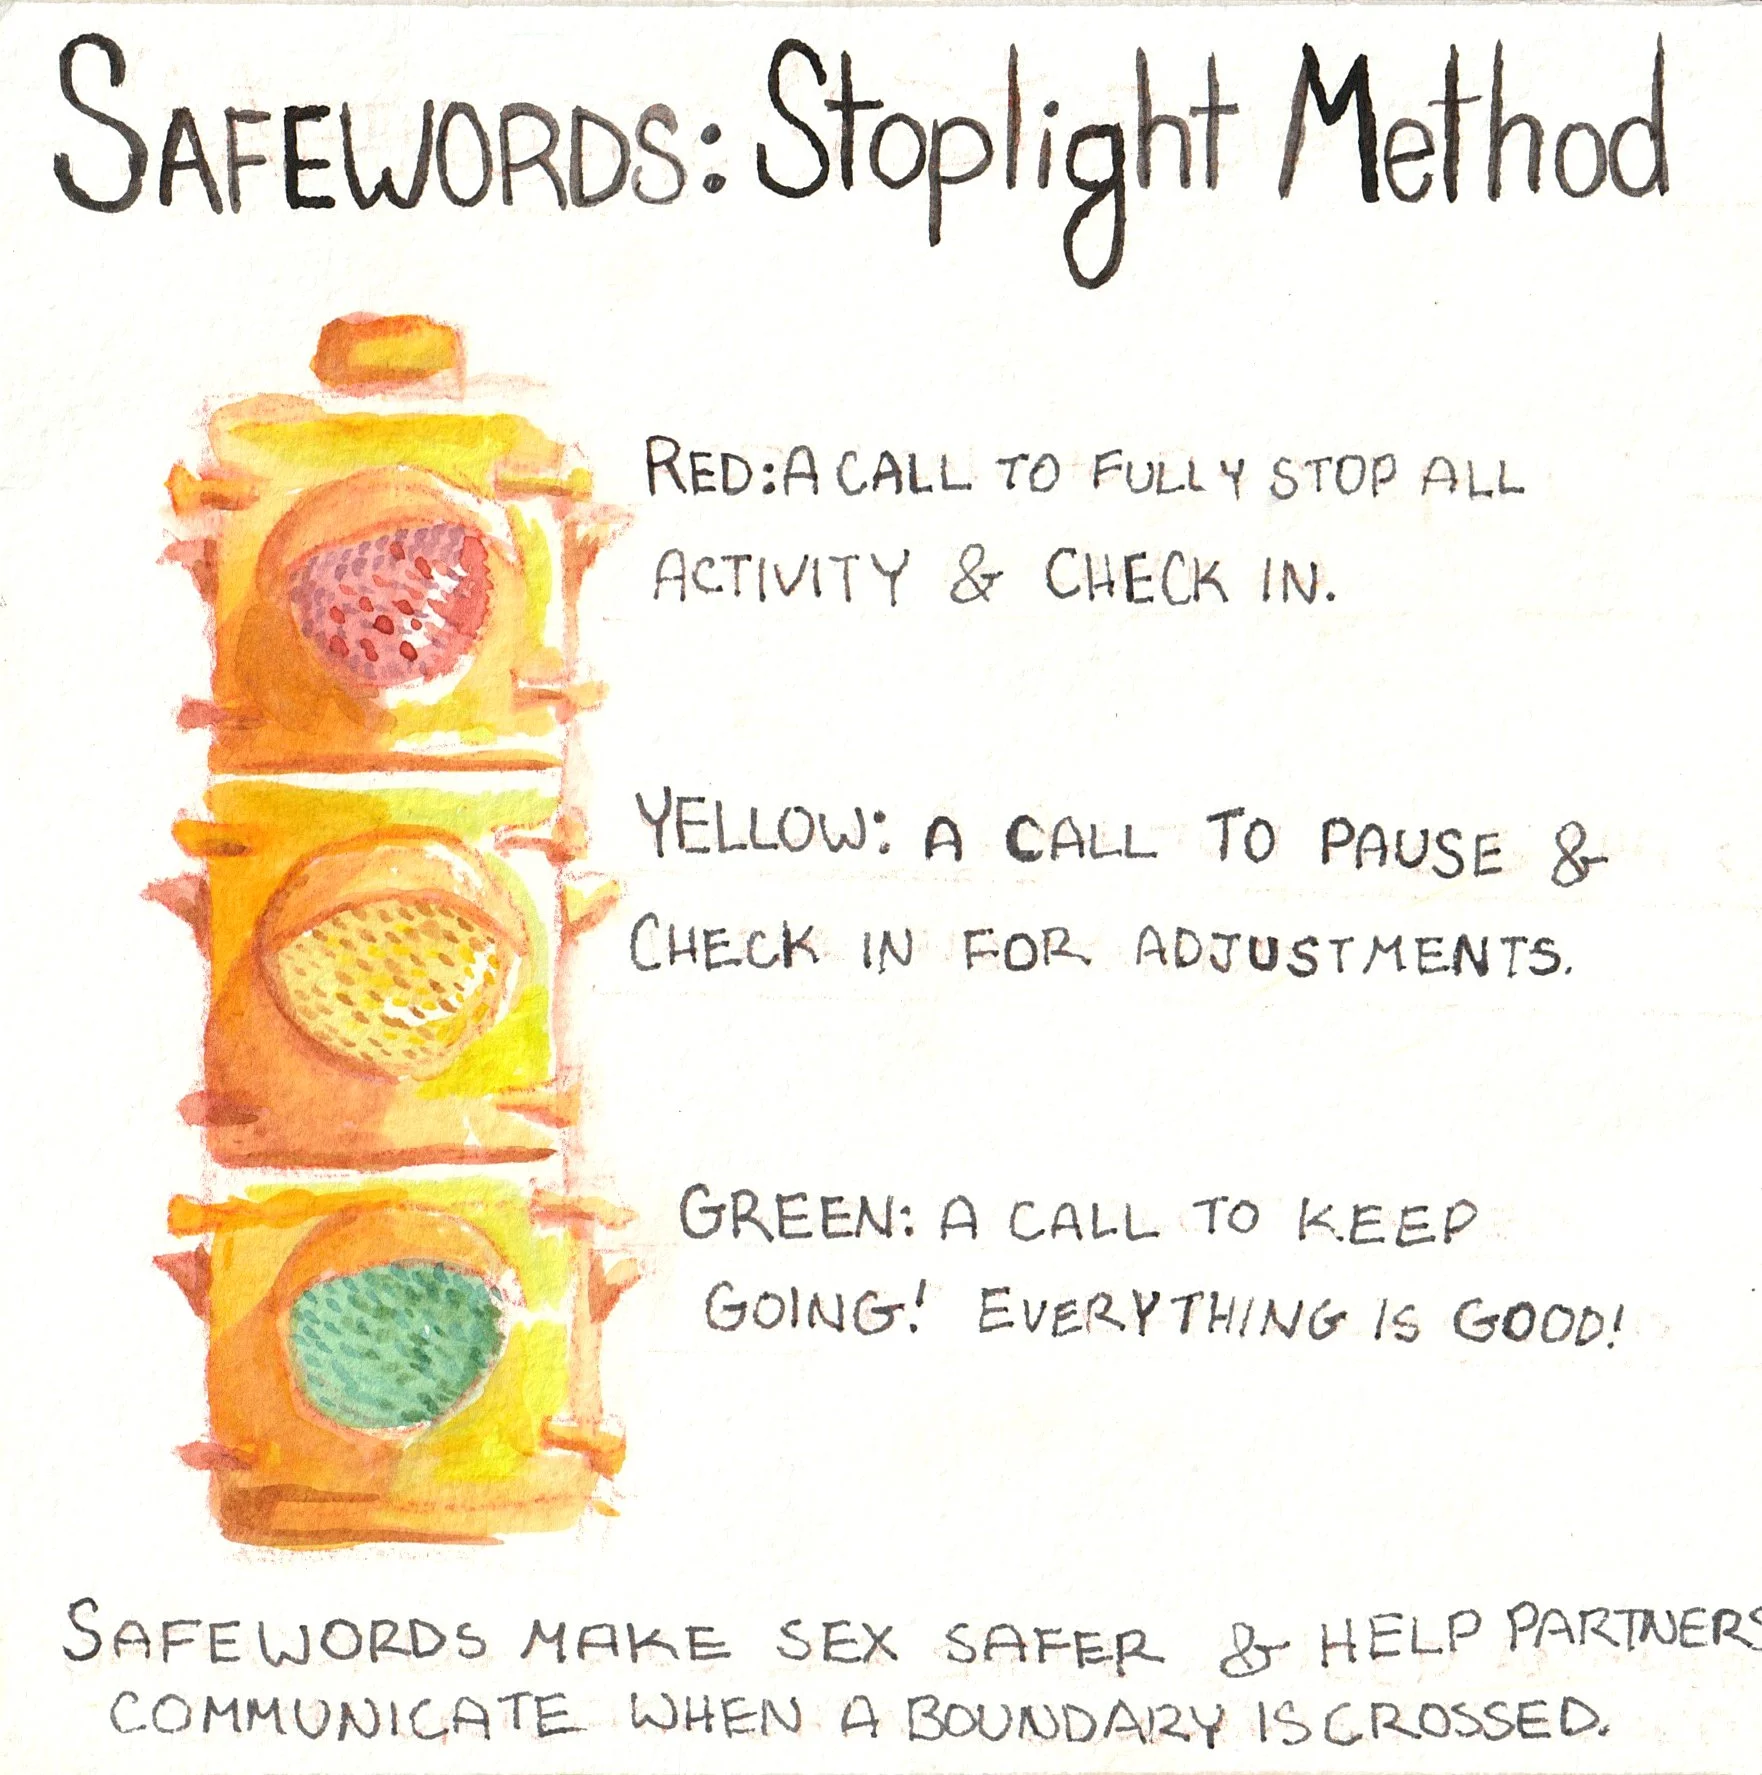 SAFEWORDS: Stoplight Method
RED: A CALL TO FULLY STOP ALL
ACTIVITY & CHECK IN.
YELLOW: A CALL TO PAUSE &
CHECK IN FOR ADJUSTMENTS.
GREEN: A CALL TO KEEP
GOING! EVERYTHING IS GOOD!
SAFEWORDS MAKE SEX SAFER & HELP PARTNERS
COMMUNICATE WHEN A BOUNDARY IS CROSSED.